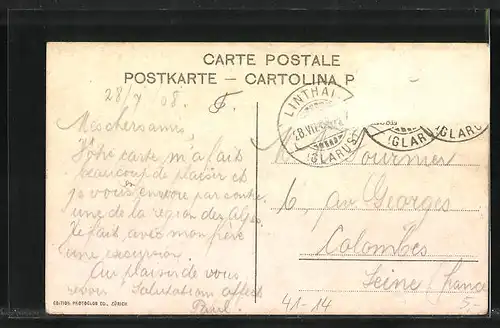 CARTE POSTALE
POSTKARTE – CARTOLINA P
28/7 08.
LINTHAL
28.VII
(GLARUS)
(GLARUS)
(GLARUS)
Mes chers amis,
Votre carte m'a fait
beaucoup de plaisir et
je vous en envoie par contre
une de la région des Alpes.
Je fait avec mon frère
une excursion.
Au plaisir de vous
revoir Salutations affect
Paul.
Fournier
6, av Georges
Colombes
Seine (France
41-14
5,-
EDITION PHOTOGLOB CO., ZÜRICH